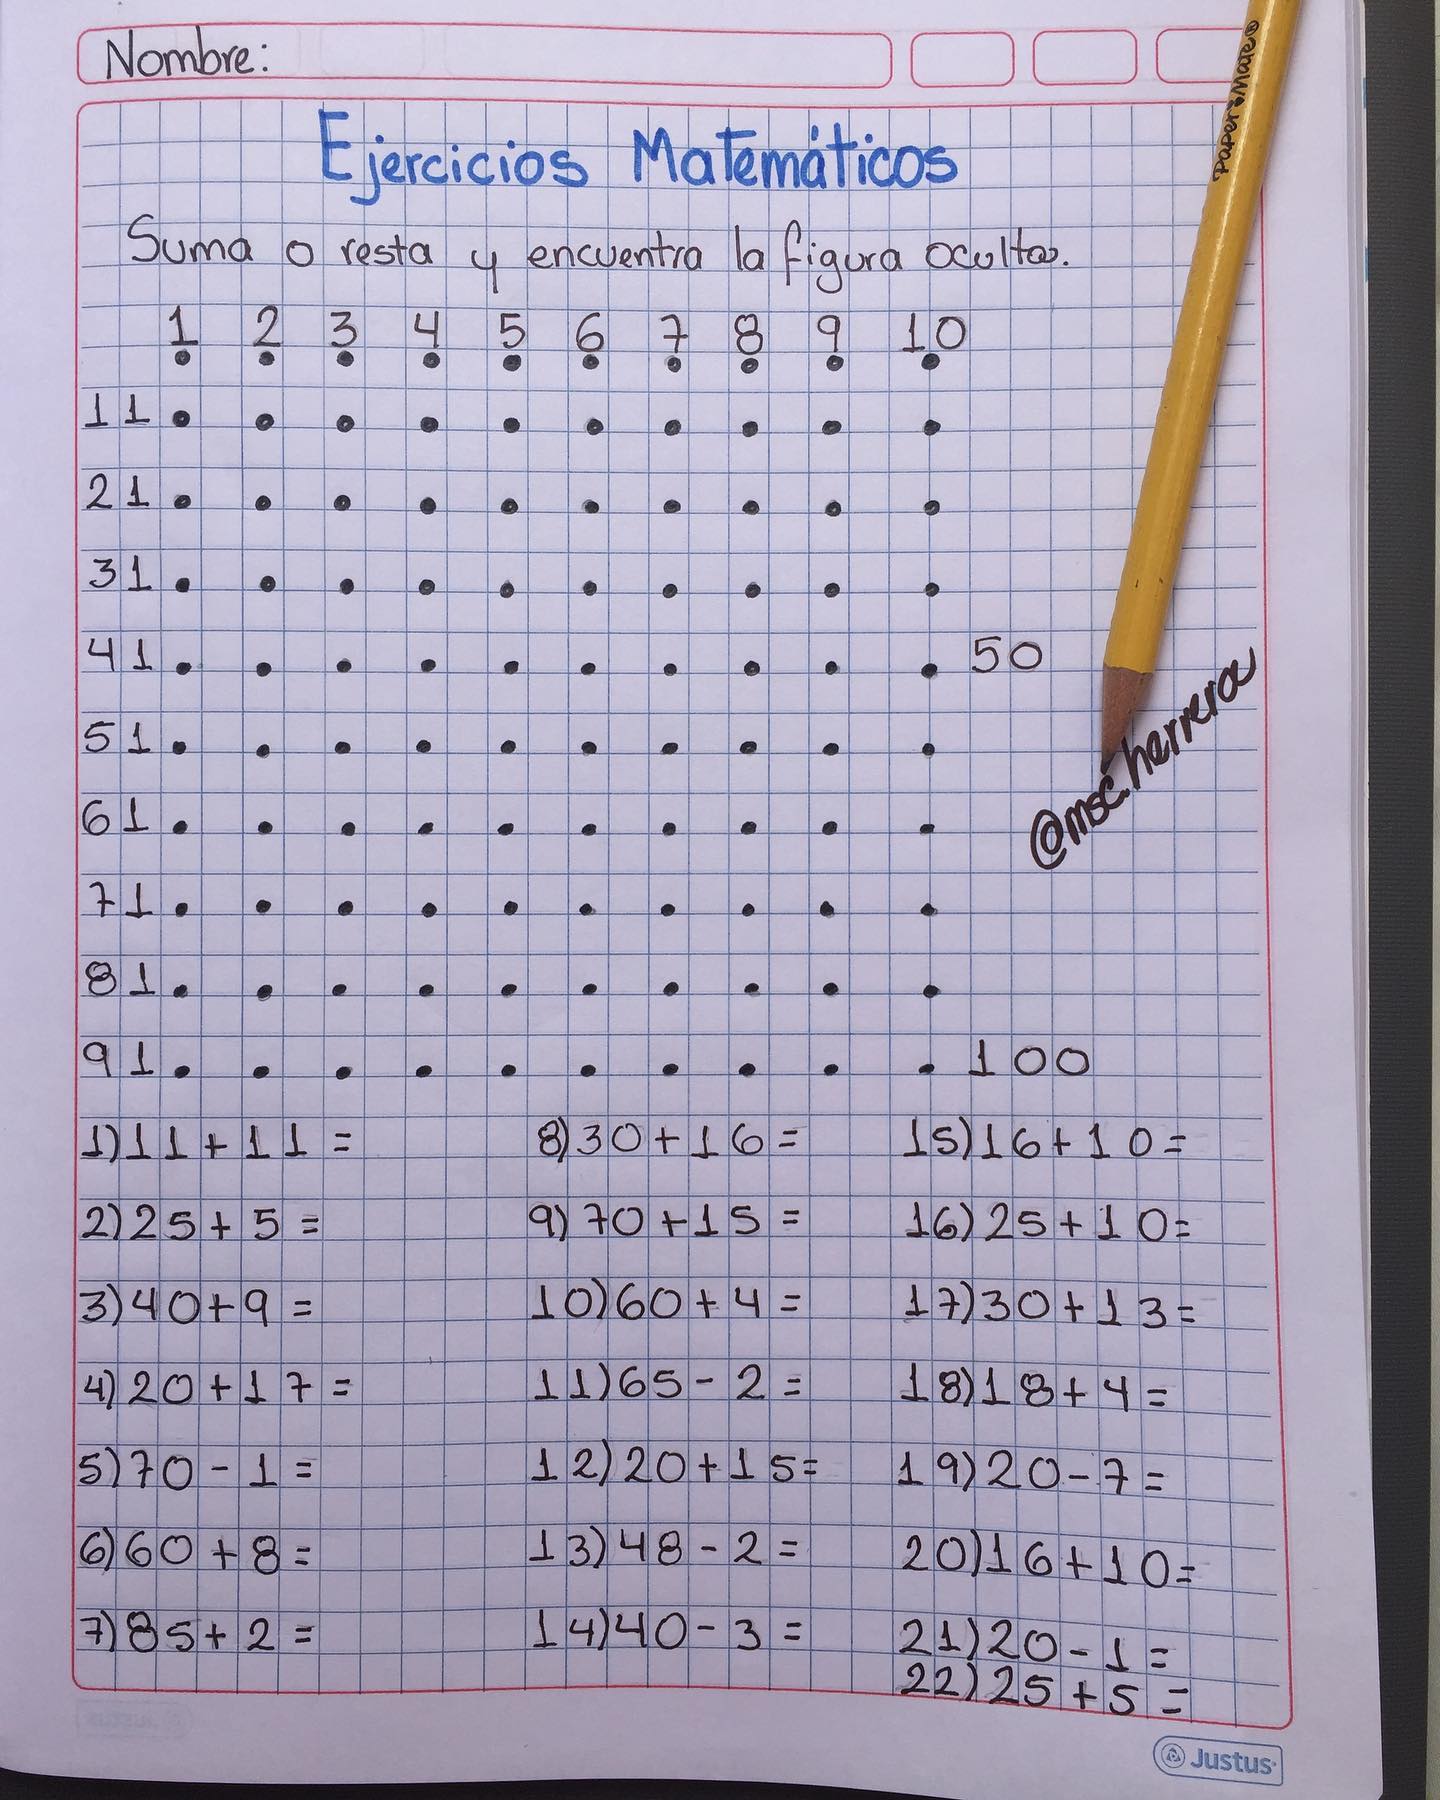 Nombre:
Paper:Mate®
Ejercicios Matemáticos
Suma o resta y encuentra la figura oculta.
1 2 3 4 5 6 7 8 9 10
11
21
31
41 50
51
61
71
81
91 100
@msc.herrera
1) 11+11= 8) 30+16= 15) 16+10=
2) 25+5= 9) 70+15= 16) 25+10=
3) 40+9= 10) 60+4= 17) 30+13=
4) 20+17= 11) 65-2= 18) 18+4=
5) 70-1= 12) 20+15= 19) 20-7=
6) 60+8= 13) 48-2= 20) 16+10=
7) 85+2= 14) 40-3= 21) 20-1=
22) 25+5=
Justus